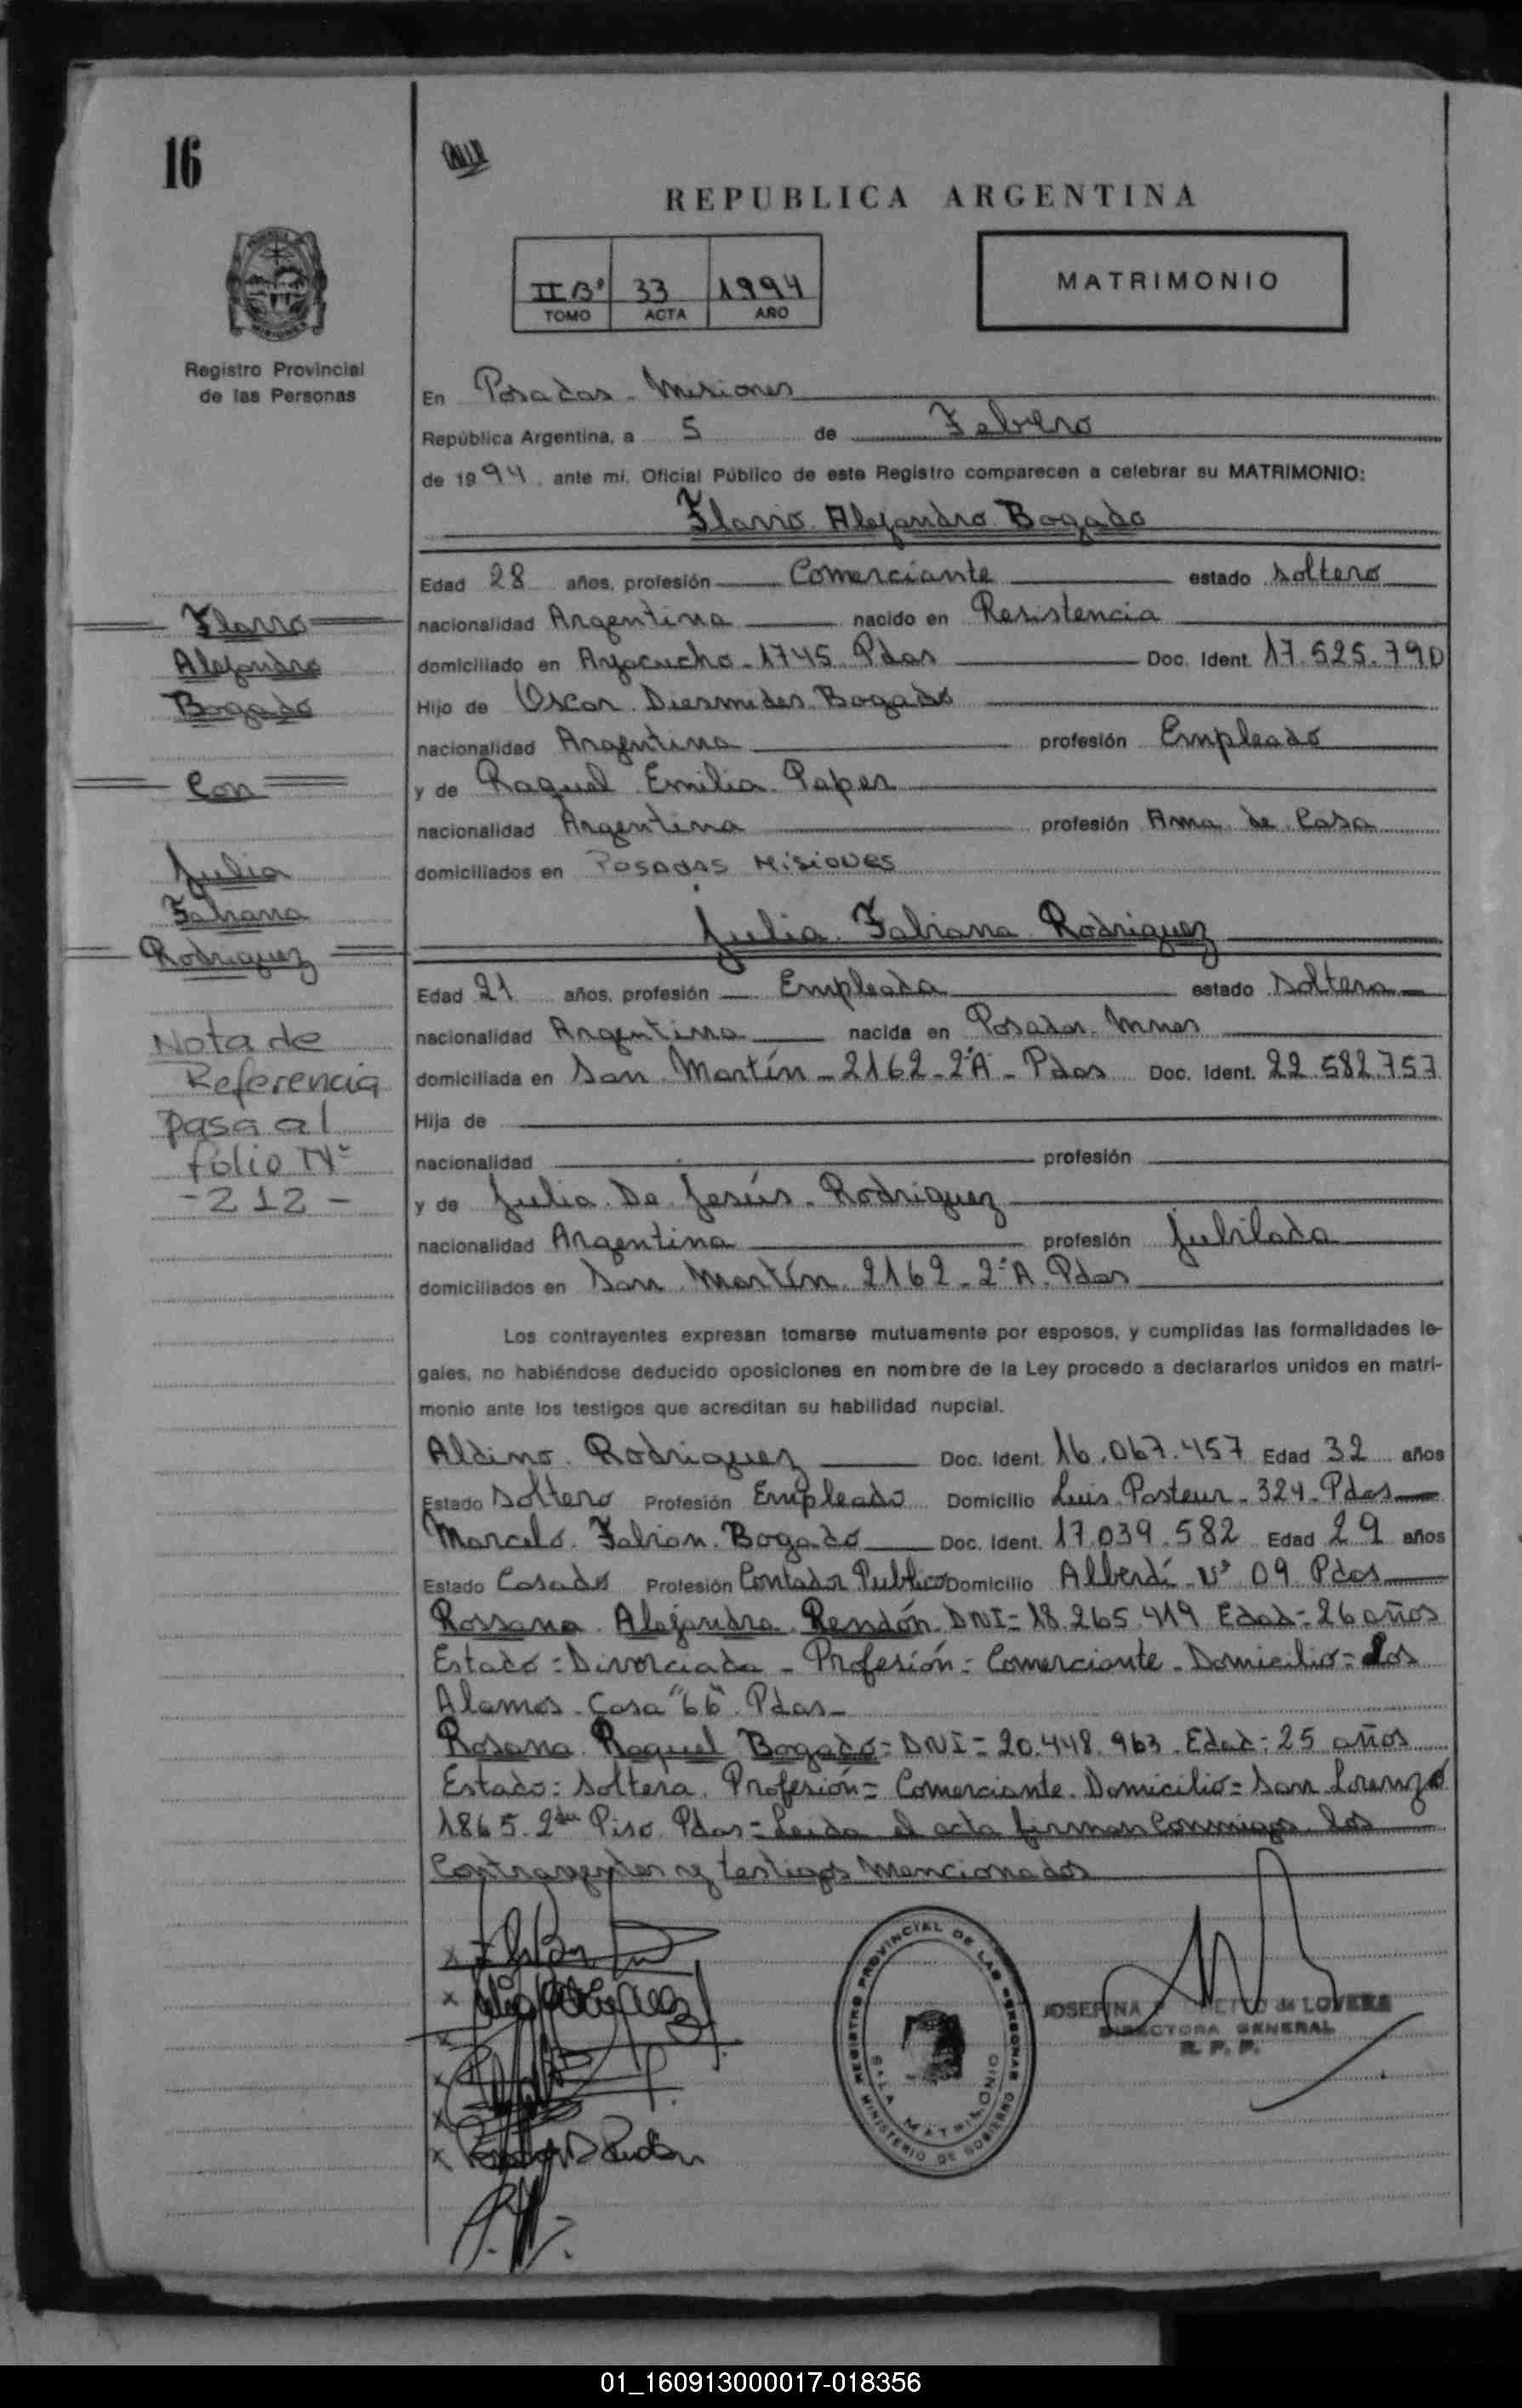 16
REPUBLICA ARGENTINA
II Bº 33 1994
TOMO ACTA AÑO
MATRIMONIO
Registro Provincial
de las Personas
En Posadas - Misiones
República Argentina, a 5 de Febrero
de 1994, ante mí, Oficial Público de este Registro comparecen a celebrar su MATRIMONIO:
Flavio Alejandro Bogado
Edad 28 años, profesión Comerciante estado soltero
nacionalidad Argentina nacido en Resistencia
domiciliado en Ayacucho - 1745 Pdas Doc. Ident. 17.525.790
Hijo de Oscar Diesmides Bogado
nacionalidad Argentina profesión Empleado
y de Raquel Emilia Paper
nacionalidad Argentina profesión Ama de Casa
domiciliados en Posadas Misiones
Julia Fabiana Rodriguez
Edad 21 años, profesión Empleada estado soltera
nacionalidad Argentina nacida en Posadas Mnes
domiciliada en San Martín - 2162 - 2ºA - Pdas Doc. Ident. 22.582.757
Hija de
nacionalidad profesión
y de Julia De Jesús Rodriguez
nacionalidad Argentina profesión Jubilada
domiciliados en San Martín 2162 - 2ºA. Pdas
Los contrayentes expresan tomarse mutuamente por esposos, y cumplidas las formalidades le-
gales, no habiéndose deducido oposiciones en nombre de la Ley procedo a declararlos unidos en matri-
monio ante los testigos que acreditan su habilidad nupcial.
Aldino Rodriguez Doc. Ident. 16.067.457 Edad 32 años
Estado Soltero Profesión Empleado Domicilio Luis Pasteur - 324 - Pdas
Marcelo Fabian Bogado Doc. Ident. 17.039.582 Edad 29 años
Estado Casado Profesión Contador Publico Domicilio Alberdi Nº 09 Pdas
Rossana Alejandra Rendón DNI = 18.265.419 Edad = 26 años
Estado = Divorciada - Profesión = Comerciante - Domicilio = Los
Alamos Casa "66" Pdas -
Rosana Raquel Bogado = DNI = 20.448.963 - Edad = 25 años
Estado = Soltera. Profesión = Comerciante. Domicilio = San Lorenzo
1865. 2do Piso Pdas = Leida el acta firman conmigo los
Contrayentes y testigos mencionados
Flavio
Alejandro
Bogado
Con
Julia
Fabiana
Rodriguez
Nota de
Referencia
pasa al
folio Nº
- 212 -
REGISTRO PROVINCIAL DE LAS PERSONAS
SALA MATRIMONIO
MINISTERIO DE GOBIERNO
JOSEFINA de LOVERA
DIRECTORA GENERAL
R. P. P.
01_160913000017-018356